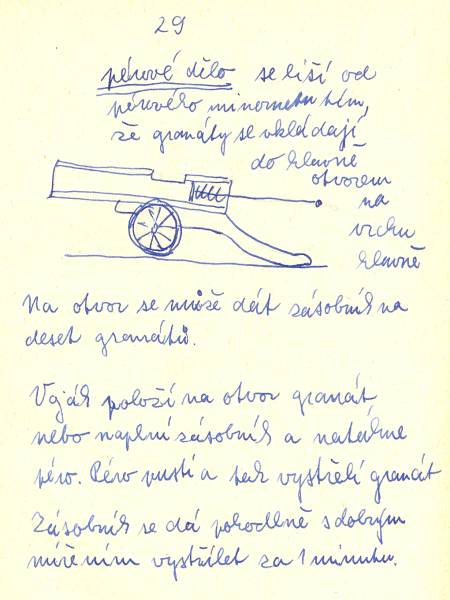 29
pérové dělo se liší od
pérového minometu tím,
že granáty se vkládají
do hlavně
otvorem
na
vrchu
hlavně
Na otvor se může dát zásobník na
deset granátů.
Voják položí na otvor granát
nebo naplní zásobník a natáhne
péro. Péro pustí a tak vystřelí granát
Zásobník se dá pohodlně s dobrým
mířením vystřílet za 1 minutu.